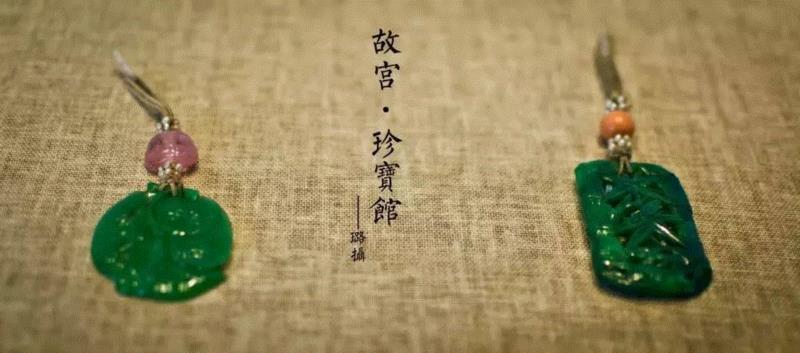 故宫·珍寶館
——璐攝